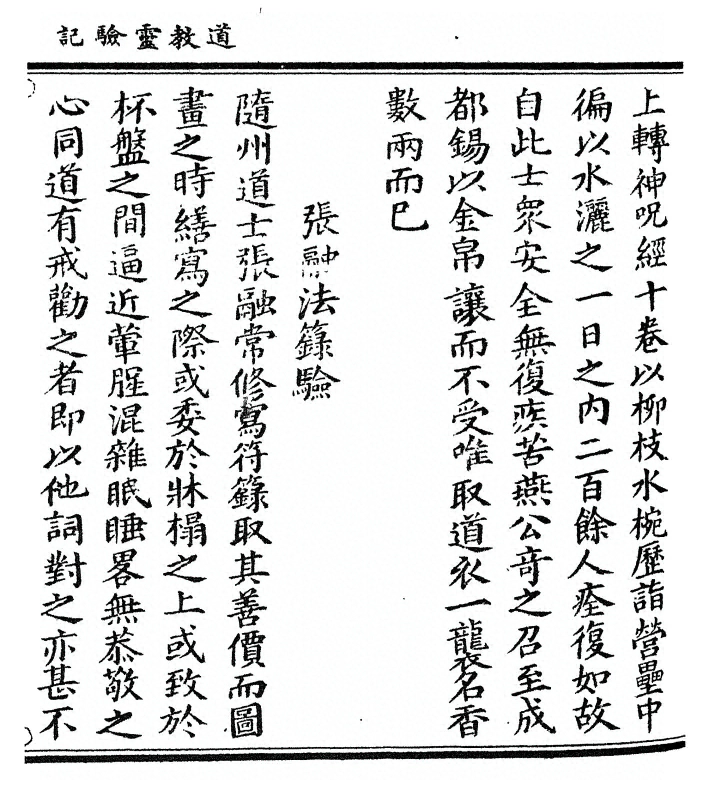 道教靈驗記
上轉神呪經十卷以柳枝水椀歷詣營壘中
徧以水灑之一日之内二百餘人痊復如故
自此士衆安全無復疾苦燕公竒之召至成
都錫以金帛讓而不受唯取道衣一襲名香
數兩而已
張融法籙驗
隨州道士張融常修寫符籙取其善價而圖
畫之時繕寫之際或委於牀榻之上或致於
杯盤之間逼近葷腥混雜眠睡畧無恭敬之
心同道有戒勸之者即以他詞對之亦甚不